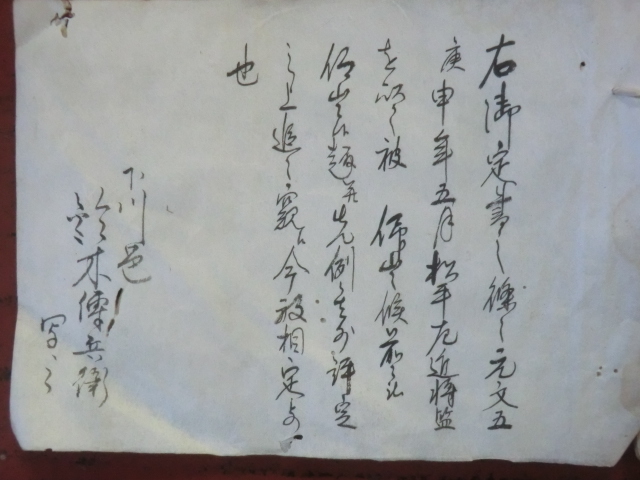 右御定書之條々元文五
庚申年五月松平左近将監
を以被 仰出候前々被
仰出之趣并先例其外評定
之上追々窺之今般相定者
也
下川邑
鈴木傳兵衛
写之